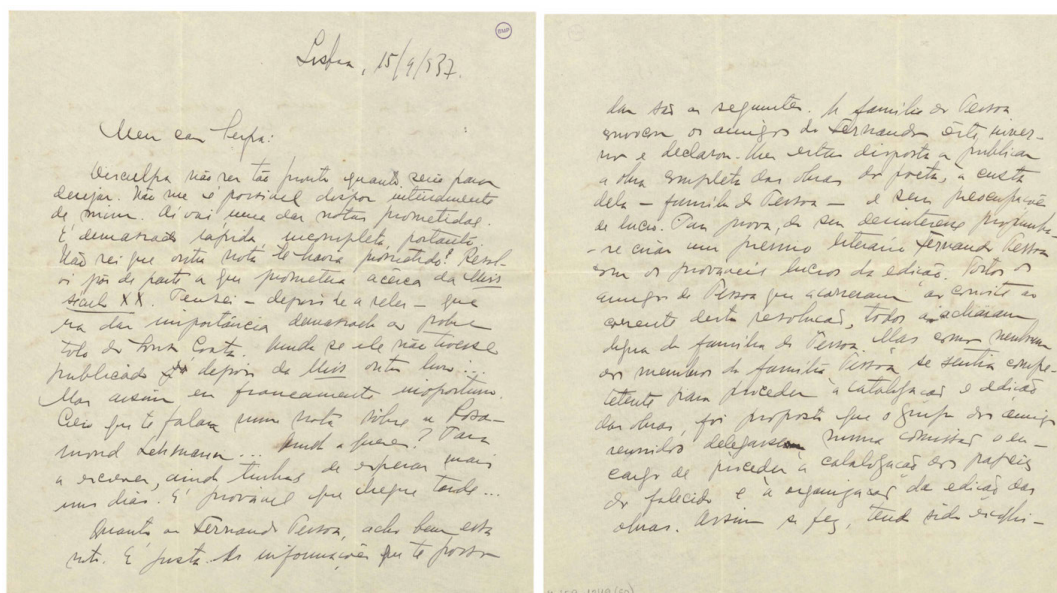 BMP
Lisboa, 15/9/937.
Meu caro Serpa:
Desculpa não ser tão pronto quanto seria para
desejar. Não me é possível dispor inteiramente
de mim. Aí vai uma das notas prometidas.
É demasiado rápida, incompleta, portanto.
Não sei que outra nota te havia prometido? Resol-
vi pôr de parte a que prometera àcerca da Miss
século XX. Pensei – depois de a reler – que
era dar importância demasiada ao pobre
tolo do Sousa Costa. Ainda se ele não tivesse
publicado já depois da Miss outro livro...
Mas assim era francamente inoportuno.
Creio que te falara numa nota sôbre a Rosa-
mond Lehmann... Ainda a queres? Para
a escrever, ainda tinhas de esperar mais
uns dias. É provável que chegue tarde...
Quanto ao Fernando Pessoa, acho bem esta
nota. É justa. As informações que te posso
dar são as seguintes. A família do Pessoa
convocou os amigos do Fernando êste inver-
no e declarou-lhes estar disposta a publicar
a obra completa das obras do poeta, à custa
dela – família do Pessoa – e sem preocupações
de lucro. Para prova do seu desinteresse propunha-
-se criar um premio literário Fernando Pessoa
com os prováveis lucros da edição. Todos os
amigos de Pessoa que acorreram ao convite ao
corrente desta resolução, todos a acharam
digna da família do Pessoa. Mas como nenhum
dos membros da família Pessoa se sentia compe-
tente para proceder à catalogação e edição
das obras, foi proposto que o grupo dos amigos
reunidos delegasse numa comissão o en-
cargo de proceder à catalogação dos papeis
do falecido e à organização da edição das
obras. Assim se fez, tendo sido escolhi-